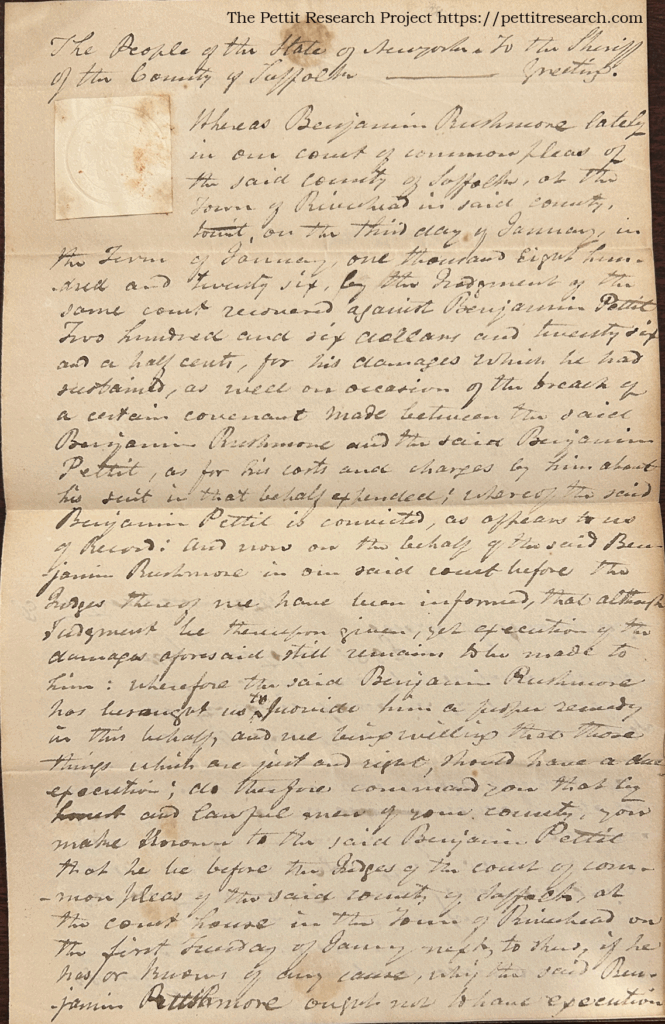 The Pettit Research Project https://pettitresearch.com
The People of the State of Newyork To the Sheriff
of the County of Suffolk Greeting.
Whereas Benjamin Rushmore lately
in our court of common pleas of
the said county of Suffolk, at the
Town of Riverhead in said county,
towit, on the third day of January, in
the Term of January, one thousand Eight hun-
dred and twenty six, by the Judgment of the
same court recovered against Benjamin Pettit
Two hundred and six dollars and twenty six
and a half cents, for his damages which he had
sustained, as well on occasion of the breach of
a certain covenant made between the said
Benjamin Rushmore and the said Benjamin
Pettit, as for his costs and charges by him about
his suit in that behalf expended; whereof the said
Benjamin Pettit is convicted, as appears to us
of Record: and now on the behalf of the said Ben-
jamin Rushmore in our said court before the
Judges thereof we have been informed, that although
Judgment be thereupon given, yet execution of the
damages aforesaid still remains to be made to
him: wherefore the said Benjamin Rushmore
has besought us, to provide him a proper remedy
in this behalf, and we being willing that those
things which are just and right, should have a due
execution; do therefore command you that by
honest and lawful men of your county, you
make known to the said Benjamin Pettit
that he be before the Judges of the court of com-
-mon pleas of the said county of Suffolk, at
the court house in the Town of Riverhead on
the first Tuesday of Janny next, to shew, if he
has/or knows of any cause, why the said Ben-
jamin Rushmore ought not to have execution